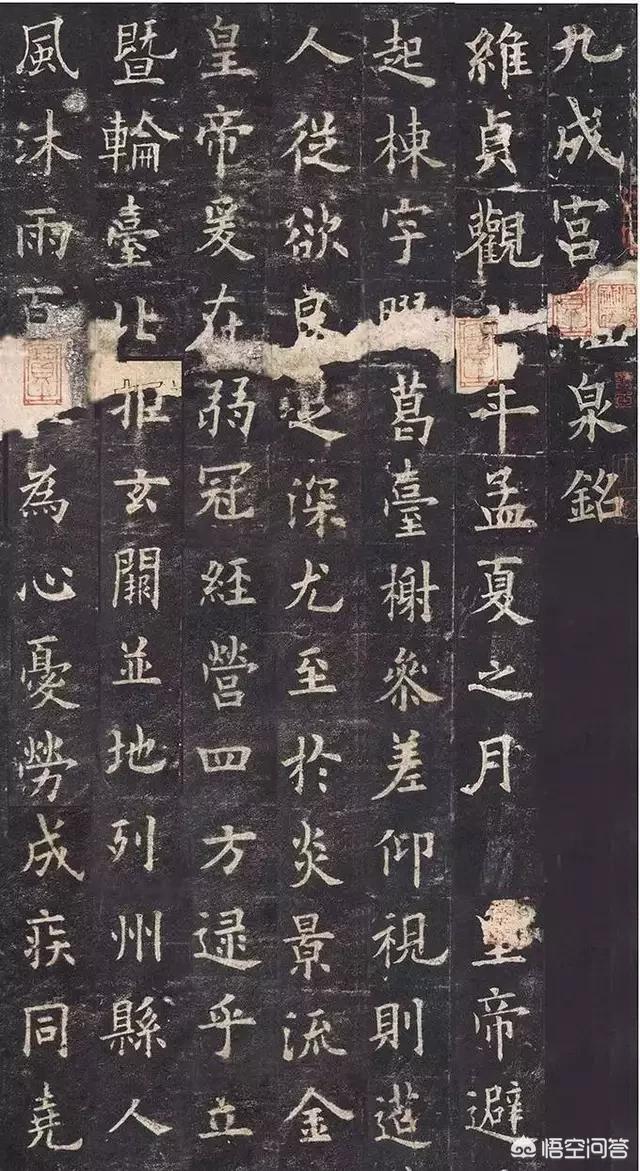 九成宮泉銘
維貞觀年孟夏之月 皇帝避
起棟宇膠葛臺榭參差仰視則迢
人從欲良足深尤至於炎景流金
皇帝爰在弱冠經營四方逮乎立
暨輪臺北拒玄闕並地列州縣人
風沐雨百為心憂勞成疾同堯
悟空问答